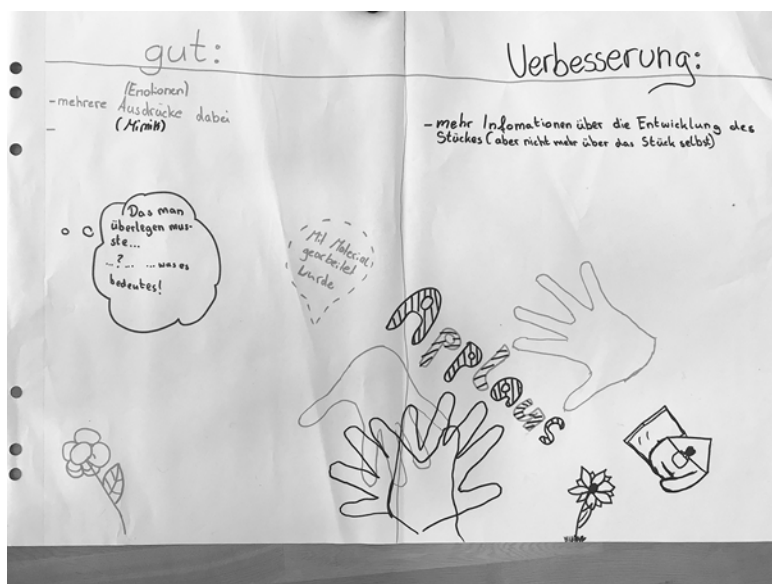 gut:
(Emotionen)
-mehrere Ausdrücke dabei
(Mimik)
-
Das man
überlegen mus-
ste...
...?... ...was es
bedeutes!
Mit Material
gearbeitet
wurde
Verbesserung:
- mehr Infomationen über die Entwicklung des
Stückes (aber nicht mehr über das Stück selbst)
Applaus